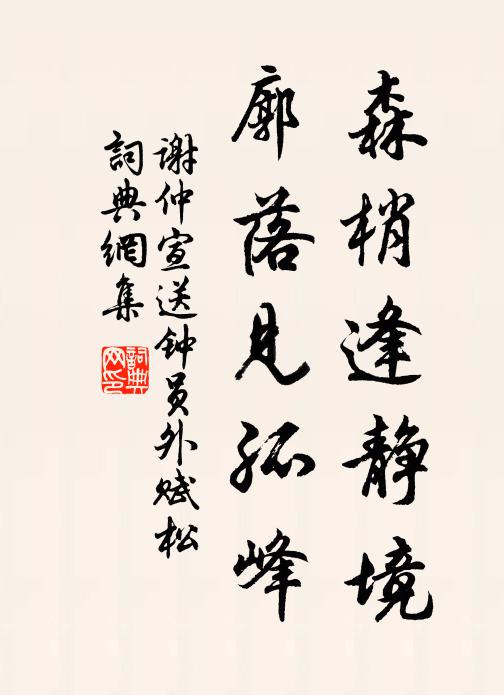 森梢逢静境
廓落见孤峰
谢仲宣送钟员外赋松
词典網集
詞典
网印